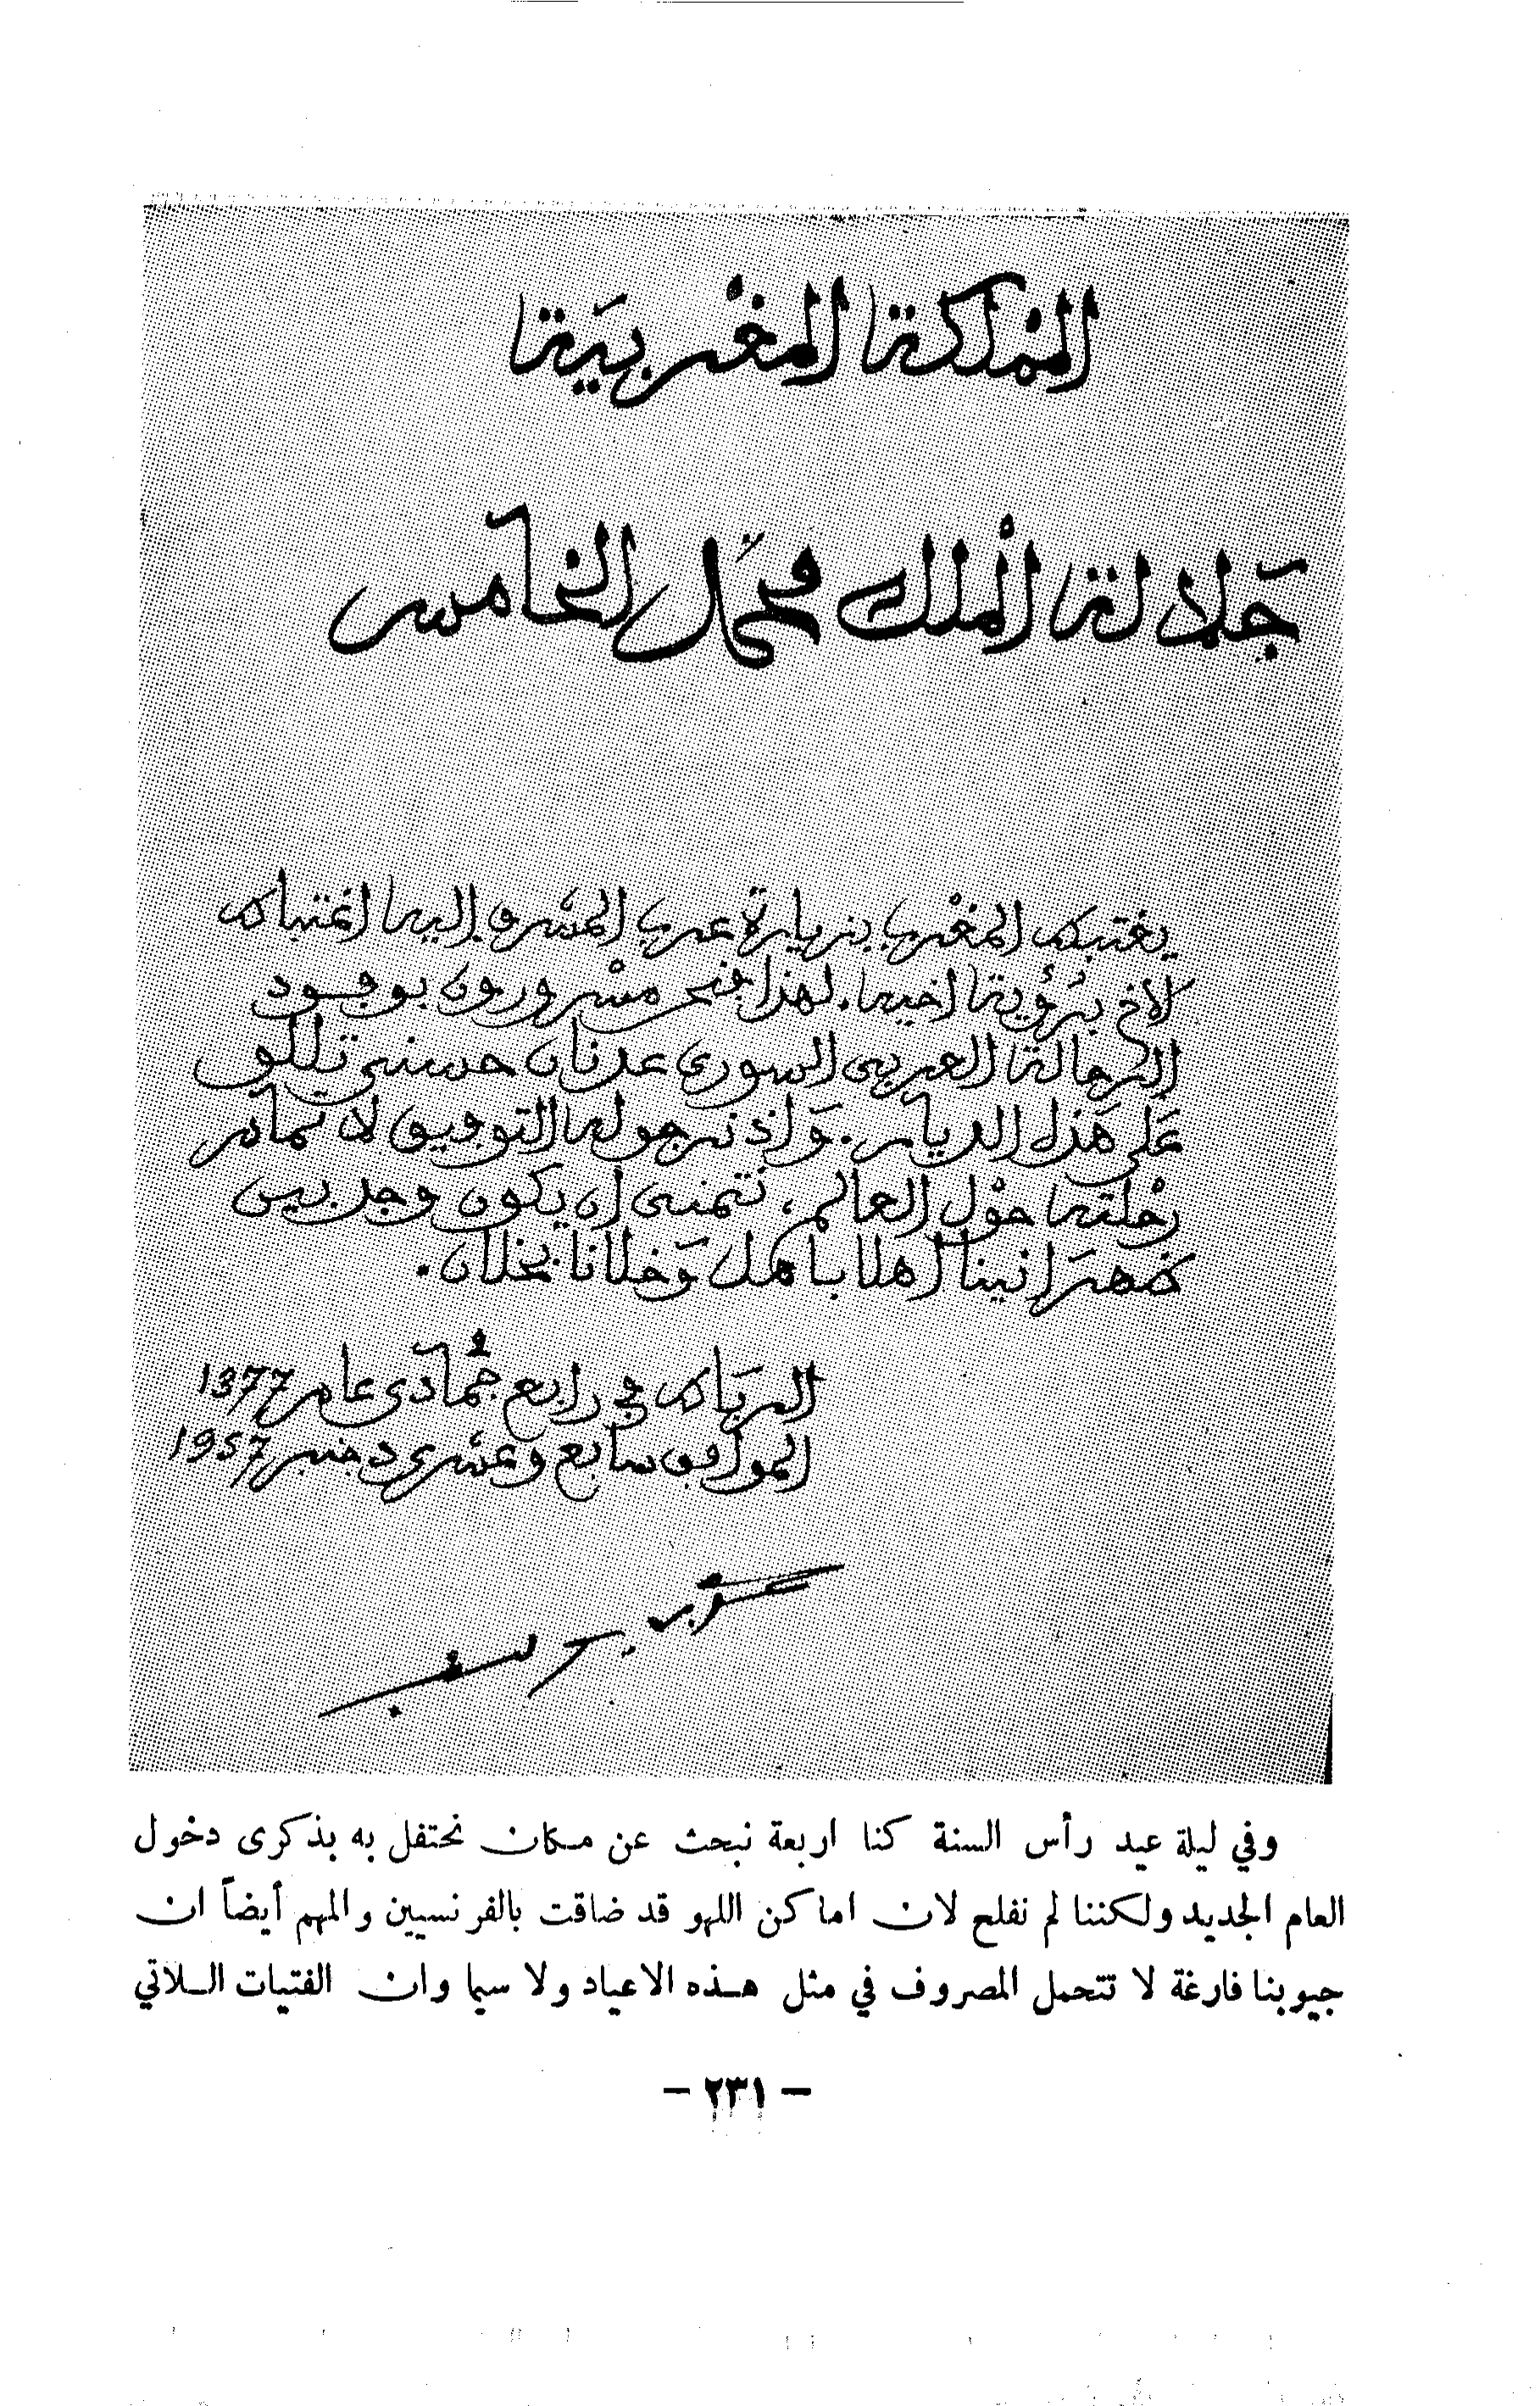 المملكة المغربية
جلالة الملك محمد الخامس
يغتبط المغرب بزيارة عرب المشرق إليه اغتباط
الأخ برؤية أخيه. لهذا فنحن مسرورون بوجود
الرحالة العربي السوري عدنان حسني تللو
على هذه الديار. وإذ نرجو له التوفيق لإتمام
رحلته حول العالم، نتمنى أن يكون وجد بين
ظهرانينا أهلا بأهل وخلانا بخلان.
الرباط في رابع جمادى عام 1377
الموافق سابع وعشري دجنبر 1957
وفي ليلة عيد رأس السنة كنا اربعة نبحث عن مكان نحتفل به بذكرى دخول
العام الجديد ولكننا لم نفلح لان اماكن اللهو قد ضاقت بالفرنسيين والمهم أيضاً ان
جيوبنا فارغة لا تتحمل المصروف في مثل هذه الاعياد ولا سيما وان الفتيات اللاتي
– ٢٣١ –